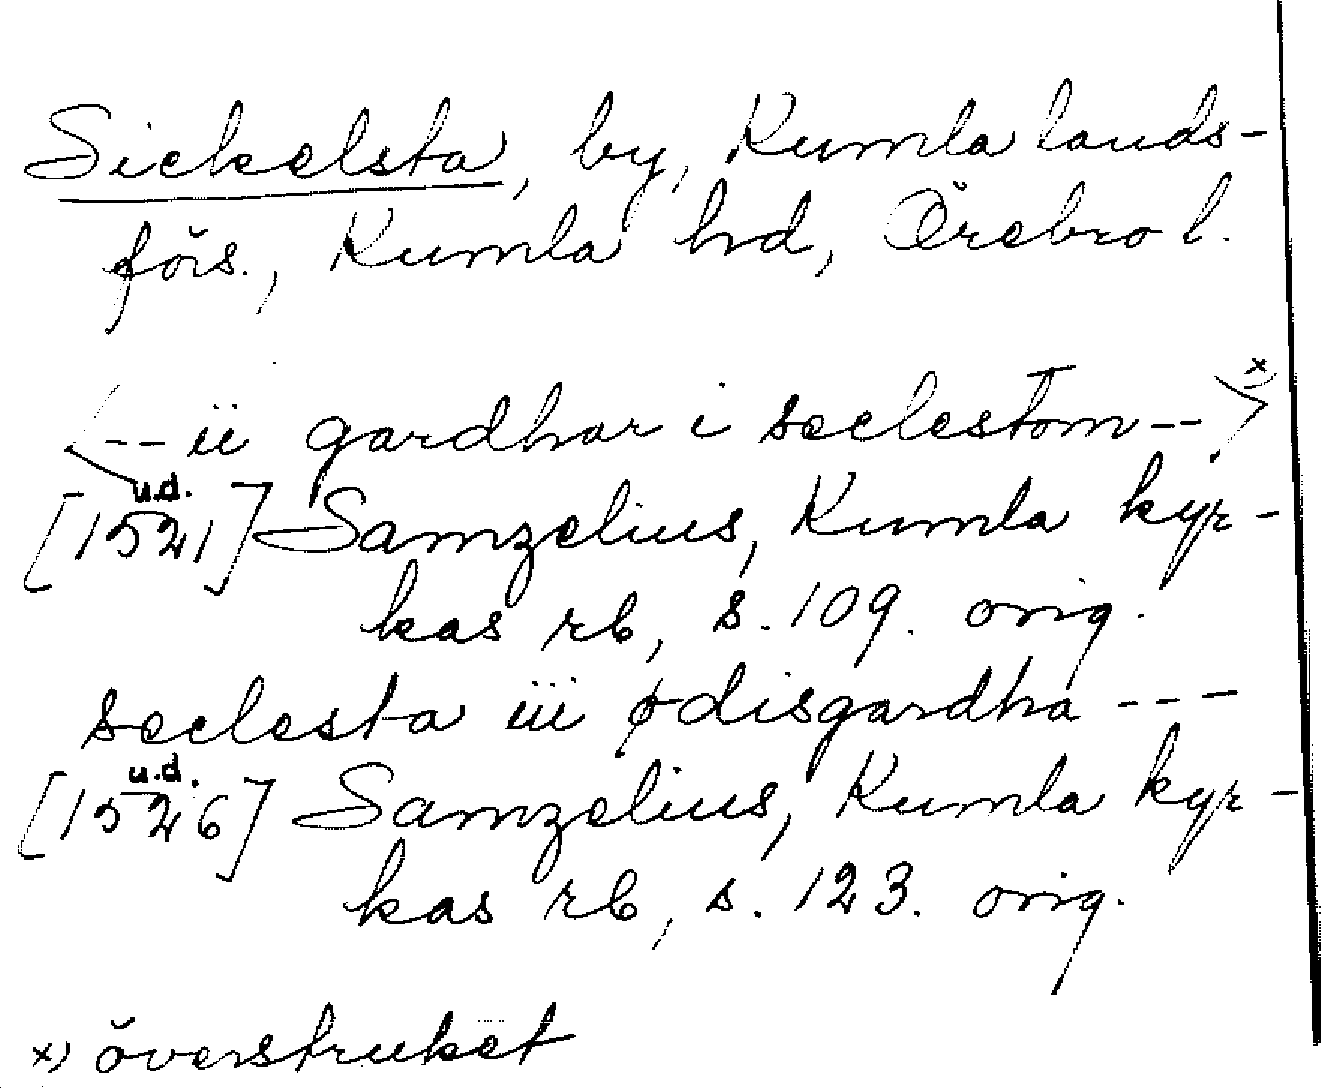 Sickelsta, by, Kumla lands-
förs., Kumla hd, Örebro l.
<-- ii gardhar i seclestom -- >x)
u.d.
[1521] Samzelius, Kumla kyr-
kas rb, s. 109. orig.
seclesta iii ødisgardha ---
u.d.
[1526] Samzelius, Kumla kyr-
kas rb, s. 123. orig.
x) överstruket